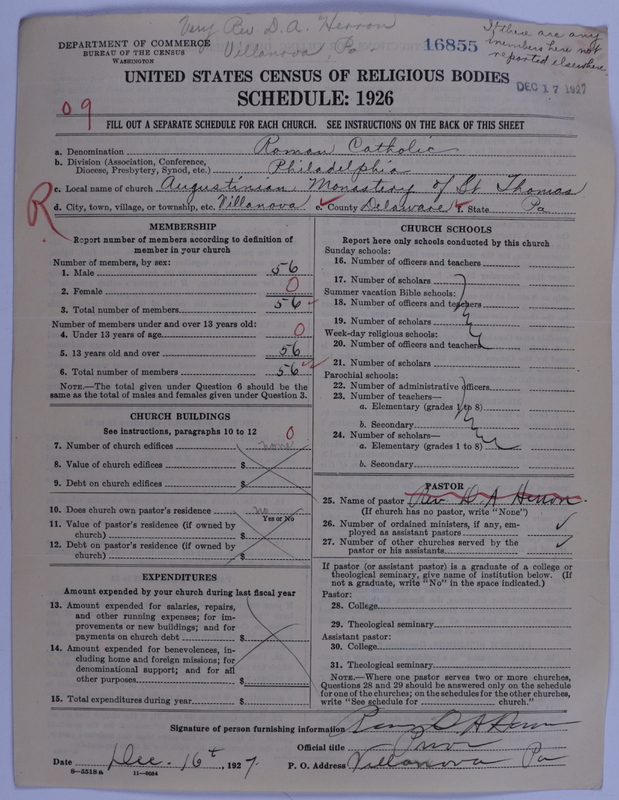 Very Rev D. A. Herron
Villanova, Pa
16855
If there are any
members here not
reported elsewhere
DEC 17 1927
DEPARTMENT OF COMMERCE
BUREAU OF THE CENSUS
WASHINGTON
UNITED STATES CENSUS OF RELIGIOUS BODIES
SCHEDULE: 1926
09
FILL OUT A SEPARATE SCHEDULE FOR EACH CHURCH. SEE INSTRUCTIONS ON THE BACK OF THIS SHEET
a. Denomination Roman Catholic
b. Division (Association, Conference,
Diocese, Presbytery, Synod, etc.) Philadelphia
c. Local name of church Augustinian Monastery of St Thomas
R
d. City, town, village, or township, etc. Villanova e. County Delaware f. State Pa
MEMBERSHIP
Report number of members according to definition of
member in your church
Number of members, by sex:
1. Male 56
2. Female 0
3. Total number of members 56
Number of members under and over 13 years old:
4. Under 13 years of age 0
5. 13 years old and over 56
6. Total number of members 56
NOTE.—The total given under Question 6 should be
the same as the total of males and females given under Question 3.
CHURCH BUILDINGS
See instructions, paragraphs 10 to 12 0
7. Number of church edifices none
8. Value of church edifices $
9. Debt on church edifices $
10. Does church own pastor's residence no
Yes or No
11. Value of pastor's residence (if owned by
church) $
12. Debt on pastor's residence (if owned by
church) $
EXPENDITURES
Amount expended by your church during last fiscal year
13. Amount expended for salaries, repairs,
and other running expenses; for im-
provements or new buildings; and for
payments on church debt $
14. Amount expended for benevolences, in-
cluding home and foreign missions; for
denominational support; and for all
other purposes $
15. Total expenditures during year $
CHURCH SCHOOLS
Report here only schools conducted by this church
Sunday schools:
16. Number of officers and teachers
17. Number of scholars
Summer vacation Bible schools:
18. Number of officers and teachers
19. Number of scholars
Week-day religious schools:
20. Number of officers and teachers
21. Number of scholars
Parochial schools:
22. Number of administrative officers
23. Number of teachers—
a. Elementary (grades 1 to 8)
b. Secondary
24. Number of scholars—
a. Elementary (grades 1 to 8)
b. Secondary
PASTOR
25. Name of pastor Rev. D A Herron.
(If church has no pastor, write "None")
26. Number of ordained ministers, if any, em-
ployed as assistant pastors
27. Number of other churches served by the
pastor or his assistants
If pastor (or assistant pastor) is a graduate of a college or
theological seminary, give name of institution below. (If
not a graduate, write "No" in the space indicated.)
Pastor:
28. College
29. Theological seminary
Assistant pastor:
30. College
31. Theological seminary
NOTE.—Where one pastor serves two or more churches,
Questions 28 and 29 should be answered only on the schedule
for one of the churches; on the schedules for the other churches,
write "See schedule for church."
Signature of person furnishing information D A Herron
Official title Prior
Date Dec. 16t, 1927. P. O. Address Villanova Pa
8—5518a 11—9034